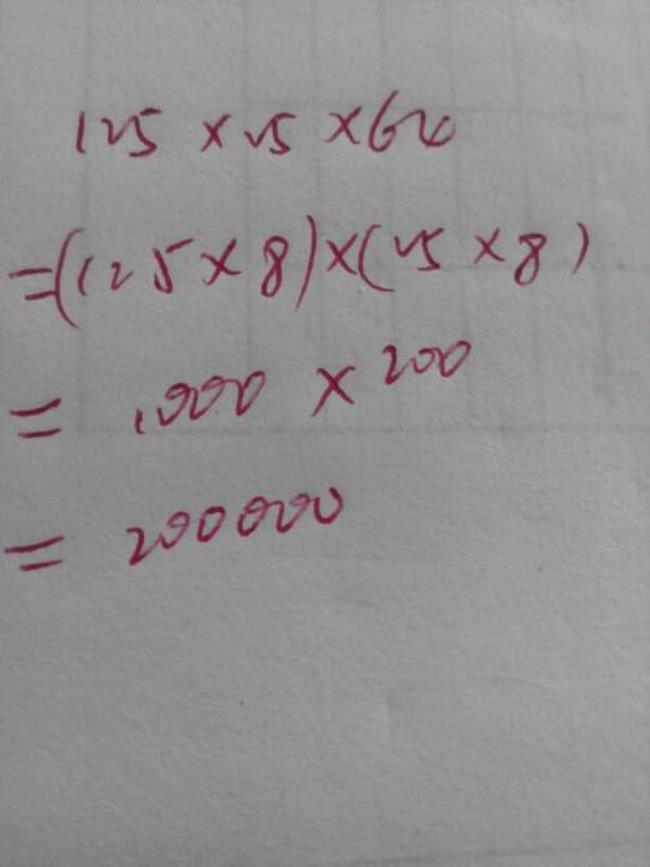 125×25×64
=(125×8)×(25×8)
=1000×200
=200000